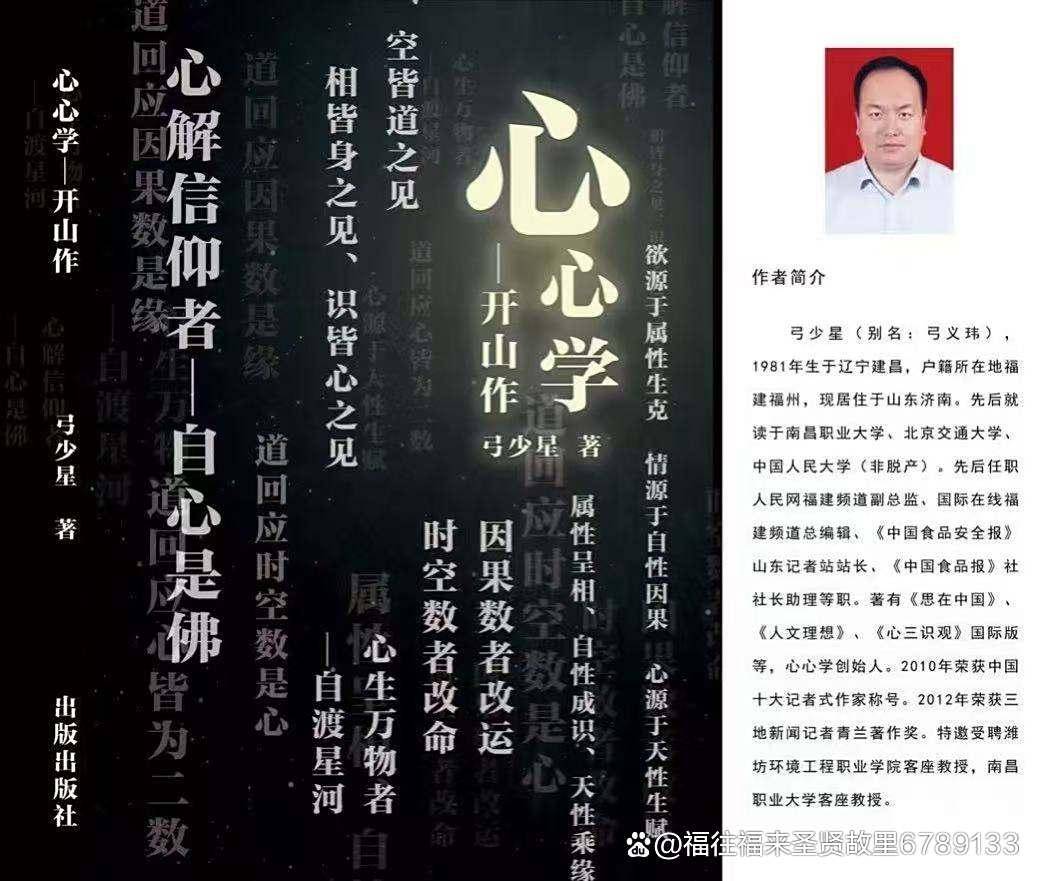 心心学—开山作
弓少星 著
出版出版社
心解信仰者—自心是佛
道回应因果数是缘
道回应因果数是缘
道回应时空数是心
道回应心皆为二数
空皆道之见
相皆身之见、识皆心之见
时空数者改命
因果数者改运
心生万物者
—自渡星河
心心学
—开山作
弓少星 著
欲源于属性生克 情源于自性因果 心源于天性生赋
属性呈相、自性成识、天性乘缘
道回应时空数是心
作者简介
弓少星（别名：弓义玮），
1981年生于辽宁建昌，户籍所在地福
建福州，现居住于山东济南。先后就
读于南昌职业大学、北京交通大学、
中国人民大学（非脱产）。先后任职
人民网福建频道副总监、国际在线福
建频道总编辑、《中国食品安全报》
山东记者站站长、《中国食品报》社
社长助理等职。著有《思在中国》、
《人文理想》、《心三识观》国际版
等，心心学创始人。2010年荣获中国
十大记者式作家称号。2012年荣获三
地新闻记者青兰著作奖。特邀受聘潍
坊环境工程职业学院客座教授，南昌
职业大学客座教授。
@福往福来圣贤故里6789133